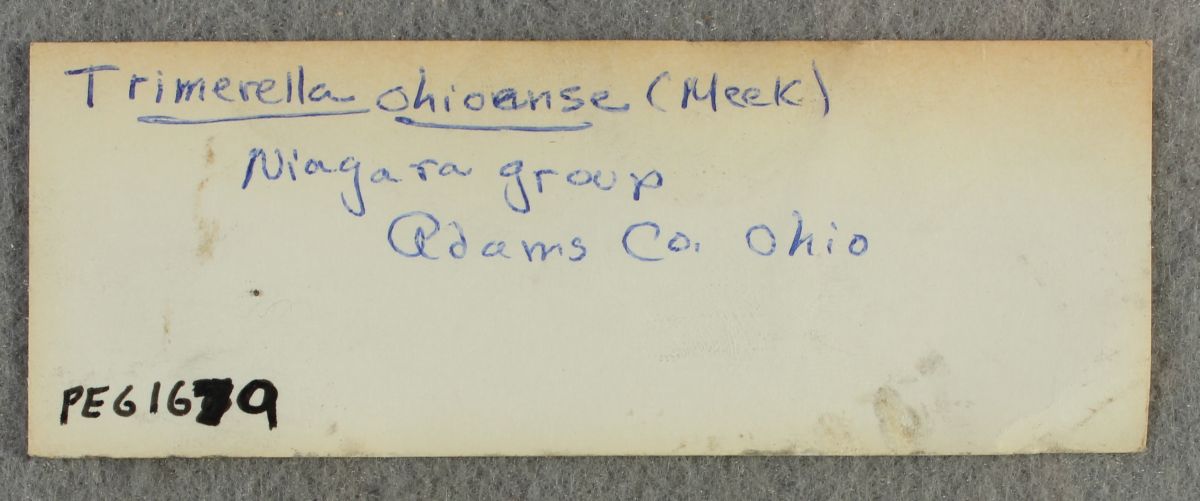 Trimerella ohioense (Meek)
Niagara group
Adams Co. Ohio
PE61679